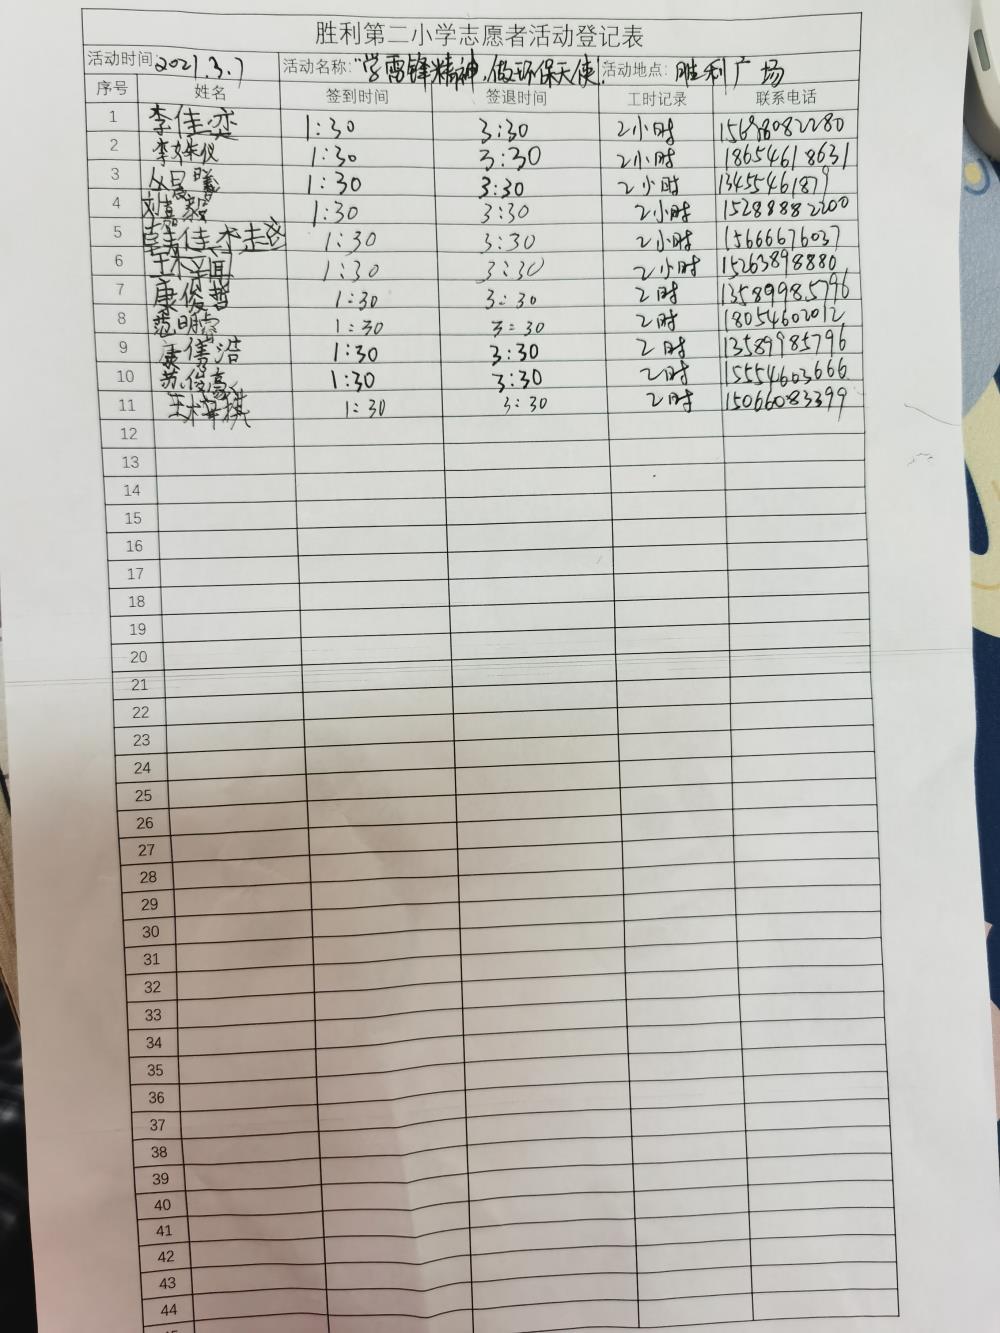 胜利第二小学志愿者活动登记表
活动时间: 2021.3.7 活动名称: "学雷锋精神,做环保天使! 活动地点: 胜利广场
序号 姓名 签到时间 签退时间 工时记录 联系电话
1 李佳奕 1:30 3:30 2小时 15698082280
2 李姝仪 1:30 3:30 2小时 18654618631
3 1:30 3:30 2小时 13455461879
4 刘嘉毅 1:30 3:30 2小时 15288882200
5 1:30 3:30 2小时 15666676037
6 1:30 3:30 2小时 15263898880
7 康俊哲 1:30 3:30 2时 13589985796
8 范明睿 1:30 3:30 2时 18054602012
9 1:30 3:30 2时 13589985796
10 苏俊豪 1:30 3:30 2时 15554603666
11 1:30 3:30 2时 15066083399
12
13
14
15
16
17
18
19
20
21
22
23
24
25
26
27
28
29
30
31
32
33
34
35
36
37
38
39
40
41
42
43
44